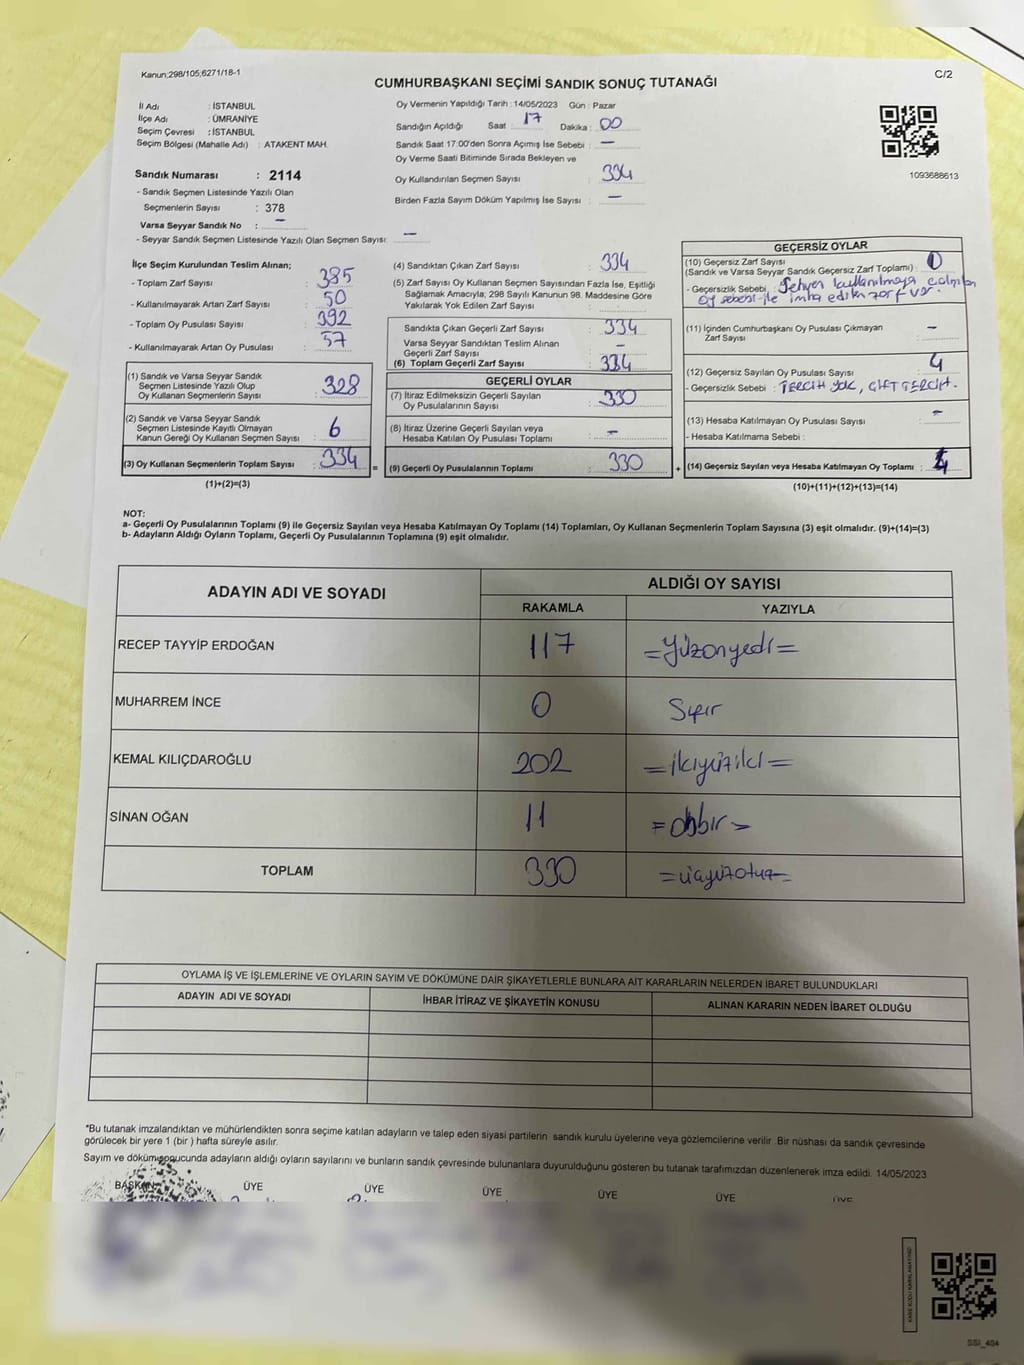 Kanun;298/105;6271/18-1
C/2
CUMHURBAŞKANI SEÇİMİ SANDIK SONUÇ TUTANAĞI
İl Adı : İSTANBUL
İlçe Adı : ÜMRANİYE
Seçim Çevresi : İSTANBUL
Seçim Bölgesi (Mahalle Adı) : ATAKENT MAH.
Sandık Numarası : 2114
- Sandık Seçmen Listesinde Yazılı Olan
Seçmenlerin Sayısı : 378
Varsa Seyyar Sandık No : –
- Seyyar Sandık Seçmen Listesinde Yazılı Olan Seçmen Sayısı: –
Oy Vermenin Yapıldığı Tarih : 14/05/2023 Gün : Pazar
Sandığın Açıldığı Saat : 17 Dakika : 00
Sandık Saat 17:00'den Sonra Açımış İse Sebebi : –
Oy Verme Saati Bitiminde Sırada Bekleyen ve
Oy Kullandırılan Seçmen Sayısı : 334
Birden Fazla Sayım Döküm Yapılmış İse Sayısı : –
1093688613
İlçe Seçim Kurulundan Teslim Alınan;
- Toplam Zarf Sayısı : 385
- Kullanılmayarak Artan Zarf Sayısı : 50
- Toplam Oy Pusulası Sayısı : 392
- Kullanılmayarak Artan Oy Pusulası : 57
(1) Sandık ve Varsa Seyyar Sandık
Seçmen Listesinde Yazılı Olup
Oy Kullanan Seçmenlerin Sayısı : 328
(2) Sandık ve Varsa Seyyar Sandık
Seçmen Listesinde Kayıtlı Olmayan
Kanun Gereği Oy Kullanan Seçmen Sayısı : 6
(3) Oy Kullanan Seçmenlerin Toplam Sayısı : 334
(1)+(2)=(3)
=
(4) Sandıktan Çıkan Zarf Sayısı : 334
(5) Zarf Sayısı Oy Kullanan Seçmen Sayısından Fazla İse, Eşitliği
Sağlamak Amacıyla; 298 Sayılı Kanunun 98. Maddesine Göre
Yakılarak Yok Edilen Zarf Sayısı :
Sandıkta Çıkan Geçerli Zarf Sayısı : 334
Varsa Seyyar Sandıktan Teslim Alınan
Geçerli Zarf Sayısı : –
(6) Toplam Geçerli Zarf Sayısı : 334
GEÇERLİ OYLAR
(7) İtiraz Edilmeksizin Geçerli Sayılan
Oy Pusulalarının Sayısı : 330
(8) İtiraz Üzerine Geçerli Sayılan veya
Hesaba Katılan Oy Pusulası Toplamı : –
(9) Geçerli Oy Pusulalarının Toplamı : 330
+
GEÇERSİZ OYLAR
(10) Geçersiz Zarf Sayısı
(Sandık ve Varsa Seyyar Sandık Geçersiz Zarf Toplamı) :
- Geçersizlik Sebebi :
(11) İçinden Cumhurbaşkanı Oy Pusulası Çıkmayan
Zarf Sayısı : –
(12) Geçersiz Sayılan Oy Pusulası Sayısı : 4
- Geçersizlik Sebebi : TERCİH YOK, ÇİFT TERCİH.
(13) Hesaba Katılmayan Oy Pusulası Sayısı : –
- Hesaba Katılmama Sebebi :
(14) Geçersiz Sayılan veya Hesaba Katılmayan Oy Toplamı : 4
(10)+(11)+(12)+(13)=(14)
NOT:
a- Geçerli Oy Pusulalarının Toplamı (9) ile Geçersiz Sayılan veya Hesaba Katılmayan Oy Toplamı (14) Toplamları, Oy Kullanan Seçmenlerin Toplam Sayısına (3) eşit olmalıdır. (9)+(14)=(3)
b- Adayların Aldığı Oyların Toplamı, Geçerli Oy Pusulalarının Toplamına (9) eşit olmalıdır.
ADAYIN ADI VE SOYADI ALDIĞI OY SAYISI
RAKAMLA YAZIYLA
RECEP TAYYİP ERDOĞAN 117 =Yüzonyedi=
MUHARREM İNCE 0 Sıfır
KEMAL KILIÇDAROĞLU 202 =ikiyüziki=
SİNAN OĞAN 11 =onbir=
TOPLAM 330 =üçyüzotuz=
OYLAMA İŞ VE İŞLEMLERİNE VE OYLARIN SAYIM VE DÖKÜMÜNE DAİR ŞİKAYETLERLE BUNLARA AİT KARARLARIN NELERDEN İBARET BULUNDUKLARI
ADAYIN ADI VE SOYADI İHBAR İTİRAZ VE ŞİKAYETİN KONUSU ALINAN KARARIN NEDEN İBARET OLDUĞU
*Bu tutanak imzalandıktan ve mühürlendikten sonra seçime katılan adayların ve talep eden siyasi partilerin sandık kurulu üyelerine veya gözlemcilerine verilir. Bir nüshası da sandık çevresinde
görülecek bir yere 1 (bir ) hafta süreyle asılır.
Sayım ve döküm sonucunda adayların aldığı oyların sayılarını ve bunların sandık çevresinde bulunanlara duyurulduğunu gösteren bu tutanak tarafımızdan düzenlenerek imza edildi. 14/05/2023
BAŞKAN ÜYE ÜYE ÜYE ÜYE ÜYE ÜYE
SSI_404